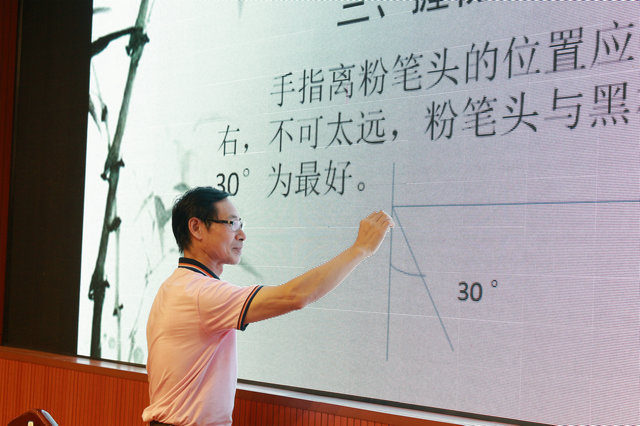 三、握
手指离粉笔头的位置应
右，不可太远，粉笔头与黑
30°为最好。
30°